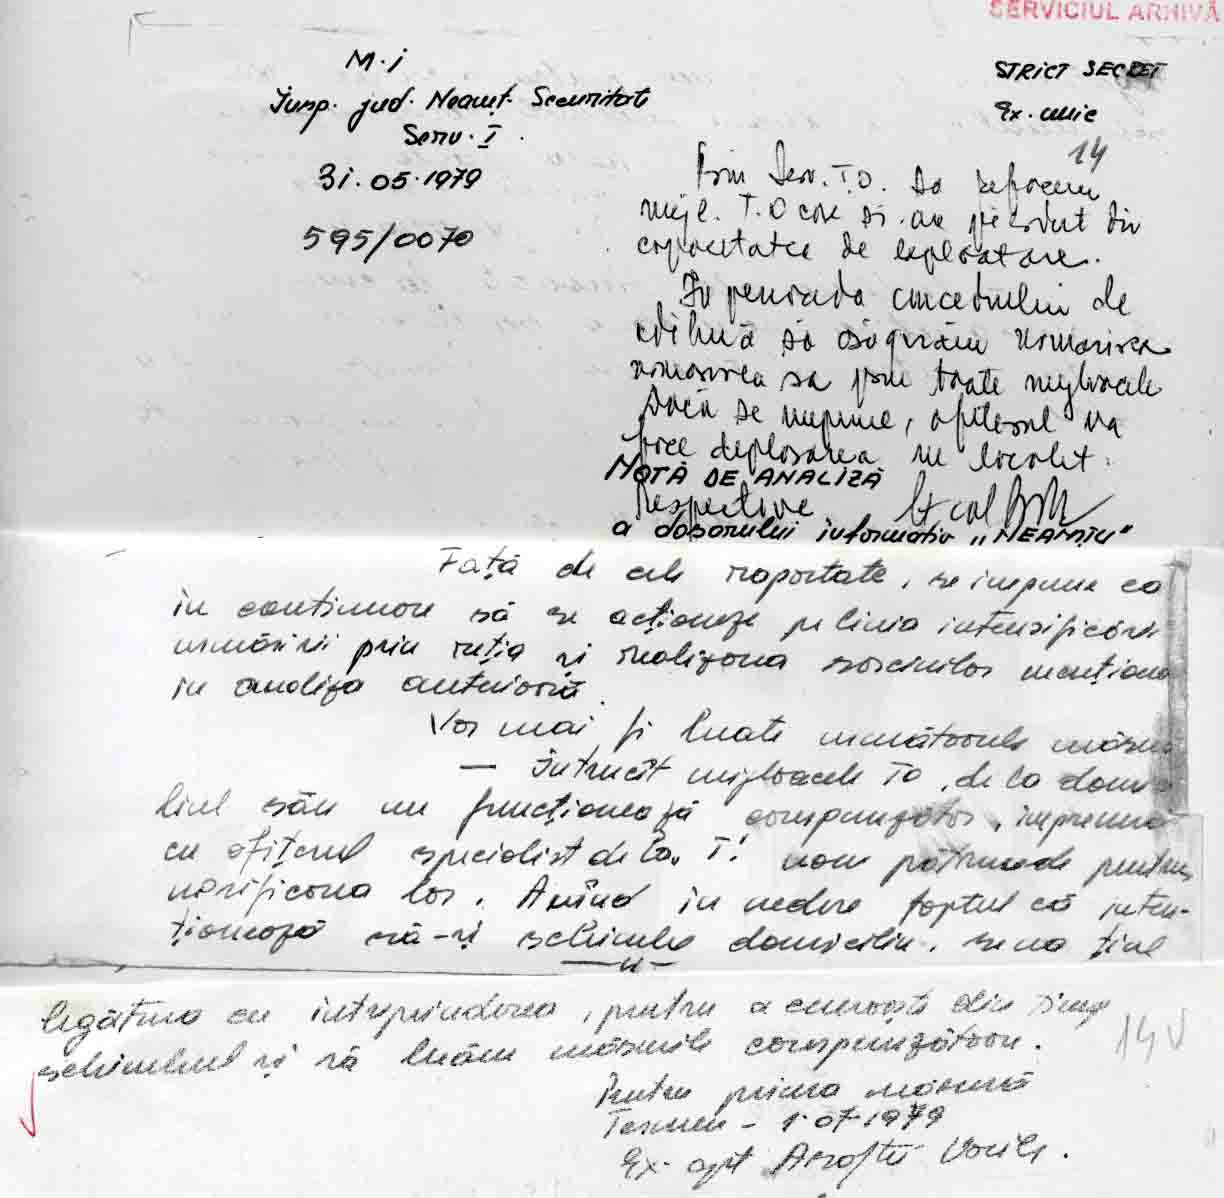 SERVICIUL ARHIVĂ
M.i
Insp. jud. Neamţ. Securitate
Serv. I.
31.05.1979
595/0070
STRICT SECRET
Ex. unic
14
Prin Serv. T.O. să refacem
mijl. T.O care şi-au pierdut din
capacitatea de exploatare.
În perioada concediului de
odihnă să asigurăm urmărirea
urmărirea sa prin toate mijloacele
Dacă se impune, ofiţerul va
face deplasarea în localit.
respective
NOTĂ DE ANALIZĂ
a dosarului informativ „NEAMŢU"
Faţă de cele raportate, se impune ca
în continuare să se acţioneze pe linia intensificării
urmăririi prin reţea şi realizarea sarcinilor menţiona
în analiza anterioară.
Vor mai fi luate următoarele măsuri
— Întrucît mijloacele TO, de la domi
liul său nu funcţionează corespunzător, împreună
cu ofiţerul specialist de la „T" vom pătrunde pentru
verificarea lor. Avînd în vedere faptul că inten-
ţionează să-şi schimbe domiciliu, se va ţine
legătura cu intreprinderea, pentru a cunoaşte din timp
schimbul şi să luăm măsurile corespunzătoare.
14 v
Pentru prima măsură
Termen - 1.07.1979
Ex. cpt Vasile.